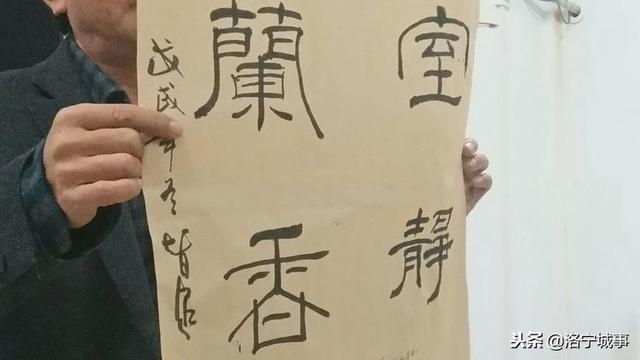 室静
蘭香
戊戌年冬
头条@洛宁城事